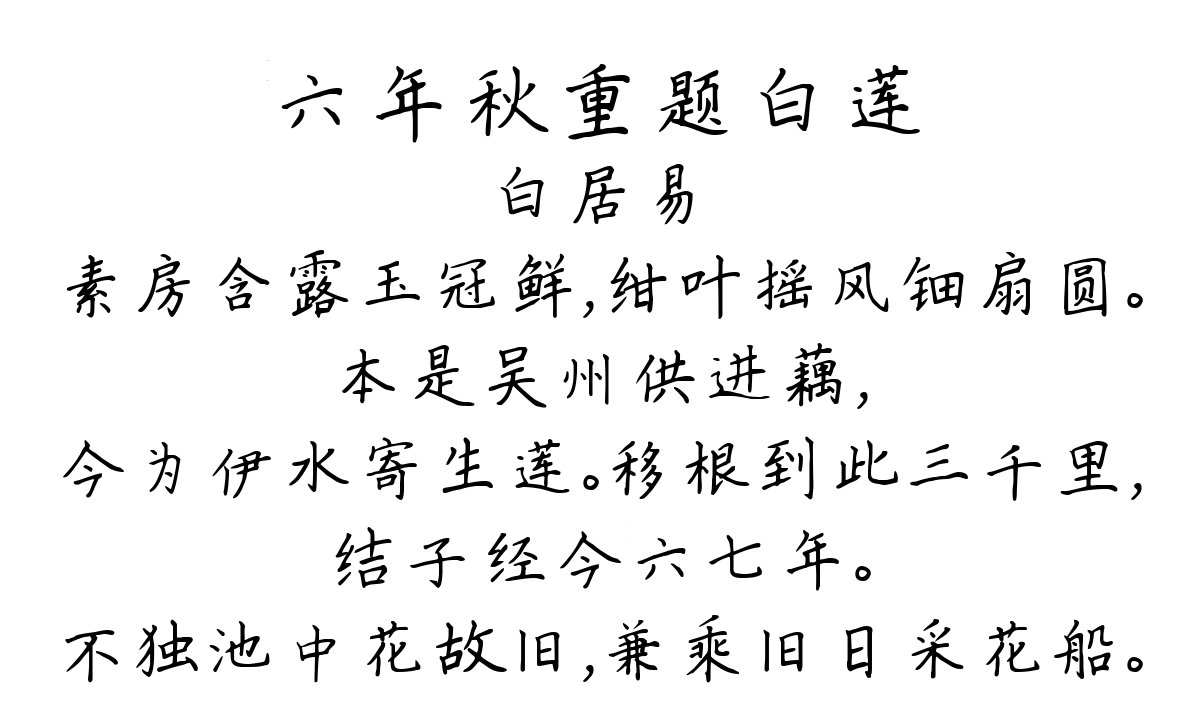 六年秋重题白莲
白居易
素房含露玉冠鲜,绀叶摇风钿扇圆。
本是吴州供进藕,
今为伊水寄生莲。移根到此三千里,
结子经今六七年。
不独池中花故旧,兼乘旧日采花船。